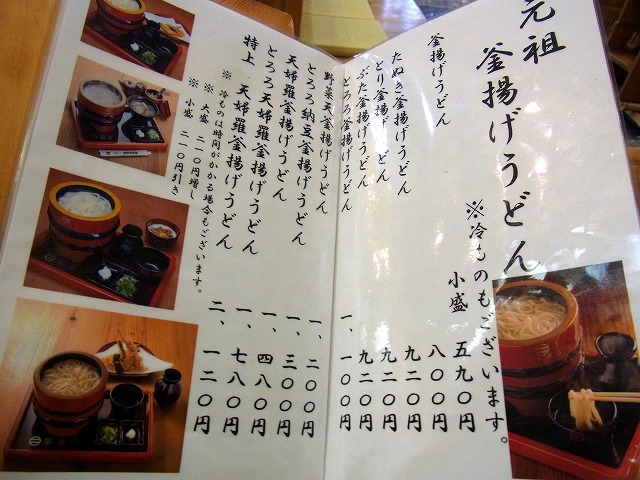 元祖
釜揚げうどん
※冷ものもございます。
小盛 五九〇円
釜揚げうどん 八〇〇円
たぬき釜揚げうどん 九二〇円
とり釜揚げうどん 九二〇円
ぶた釜揚げうどん 九二〇円
とろろ釜揚げうどん 一、一〇〇円
野菜天釜揚げうどん 一、二〇〇円
とろろ納豆釜揚げうどん 一、三〇〇円
天婦羅釜揚げうどん 一、四八〇円
とろろ天婦羅釜揚げうどん 一、七八〇円
特上 天婦羅釜揚げうどん 二、一二〇円
※ 冷ものは時間がかかる場合もございます。
※ 大盛 二一〇円増し
※ 小盛 二一〇円引き